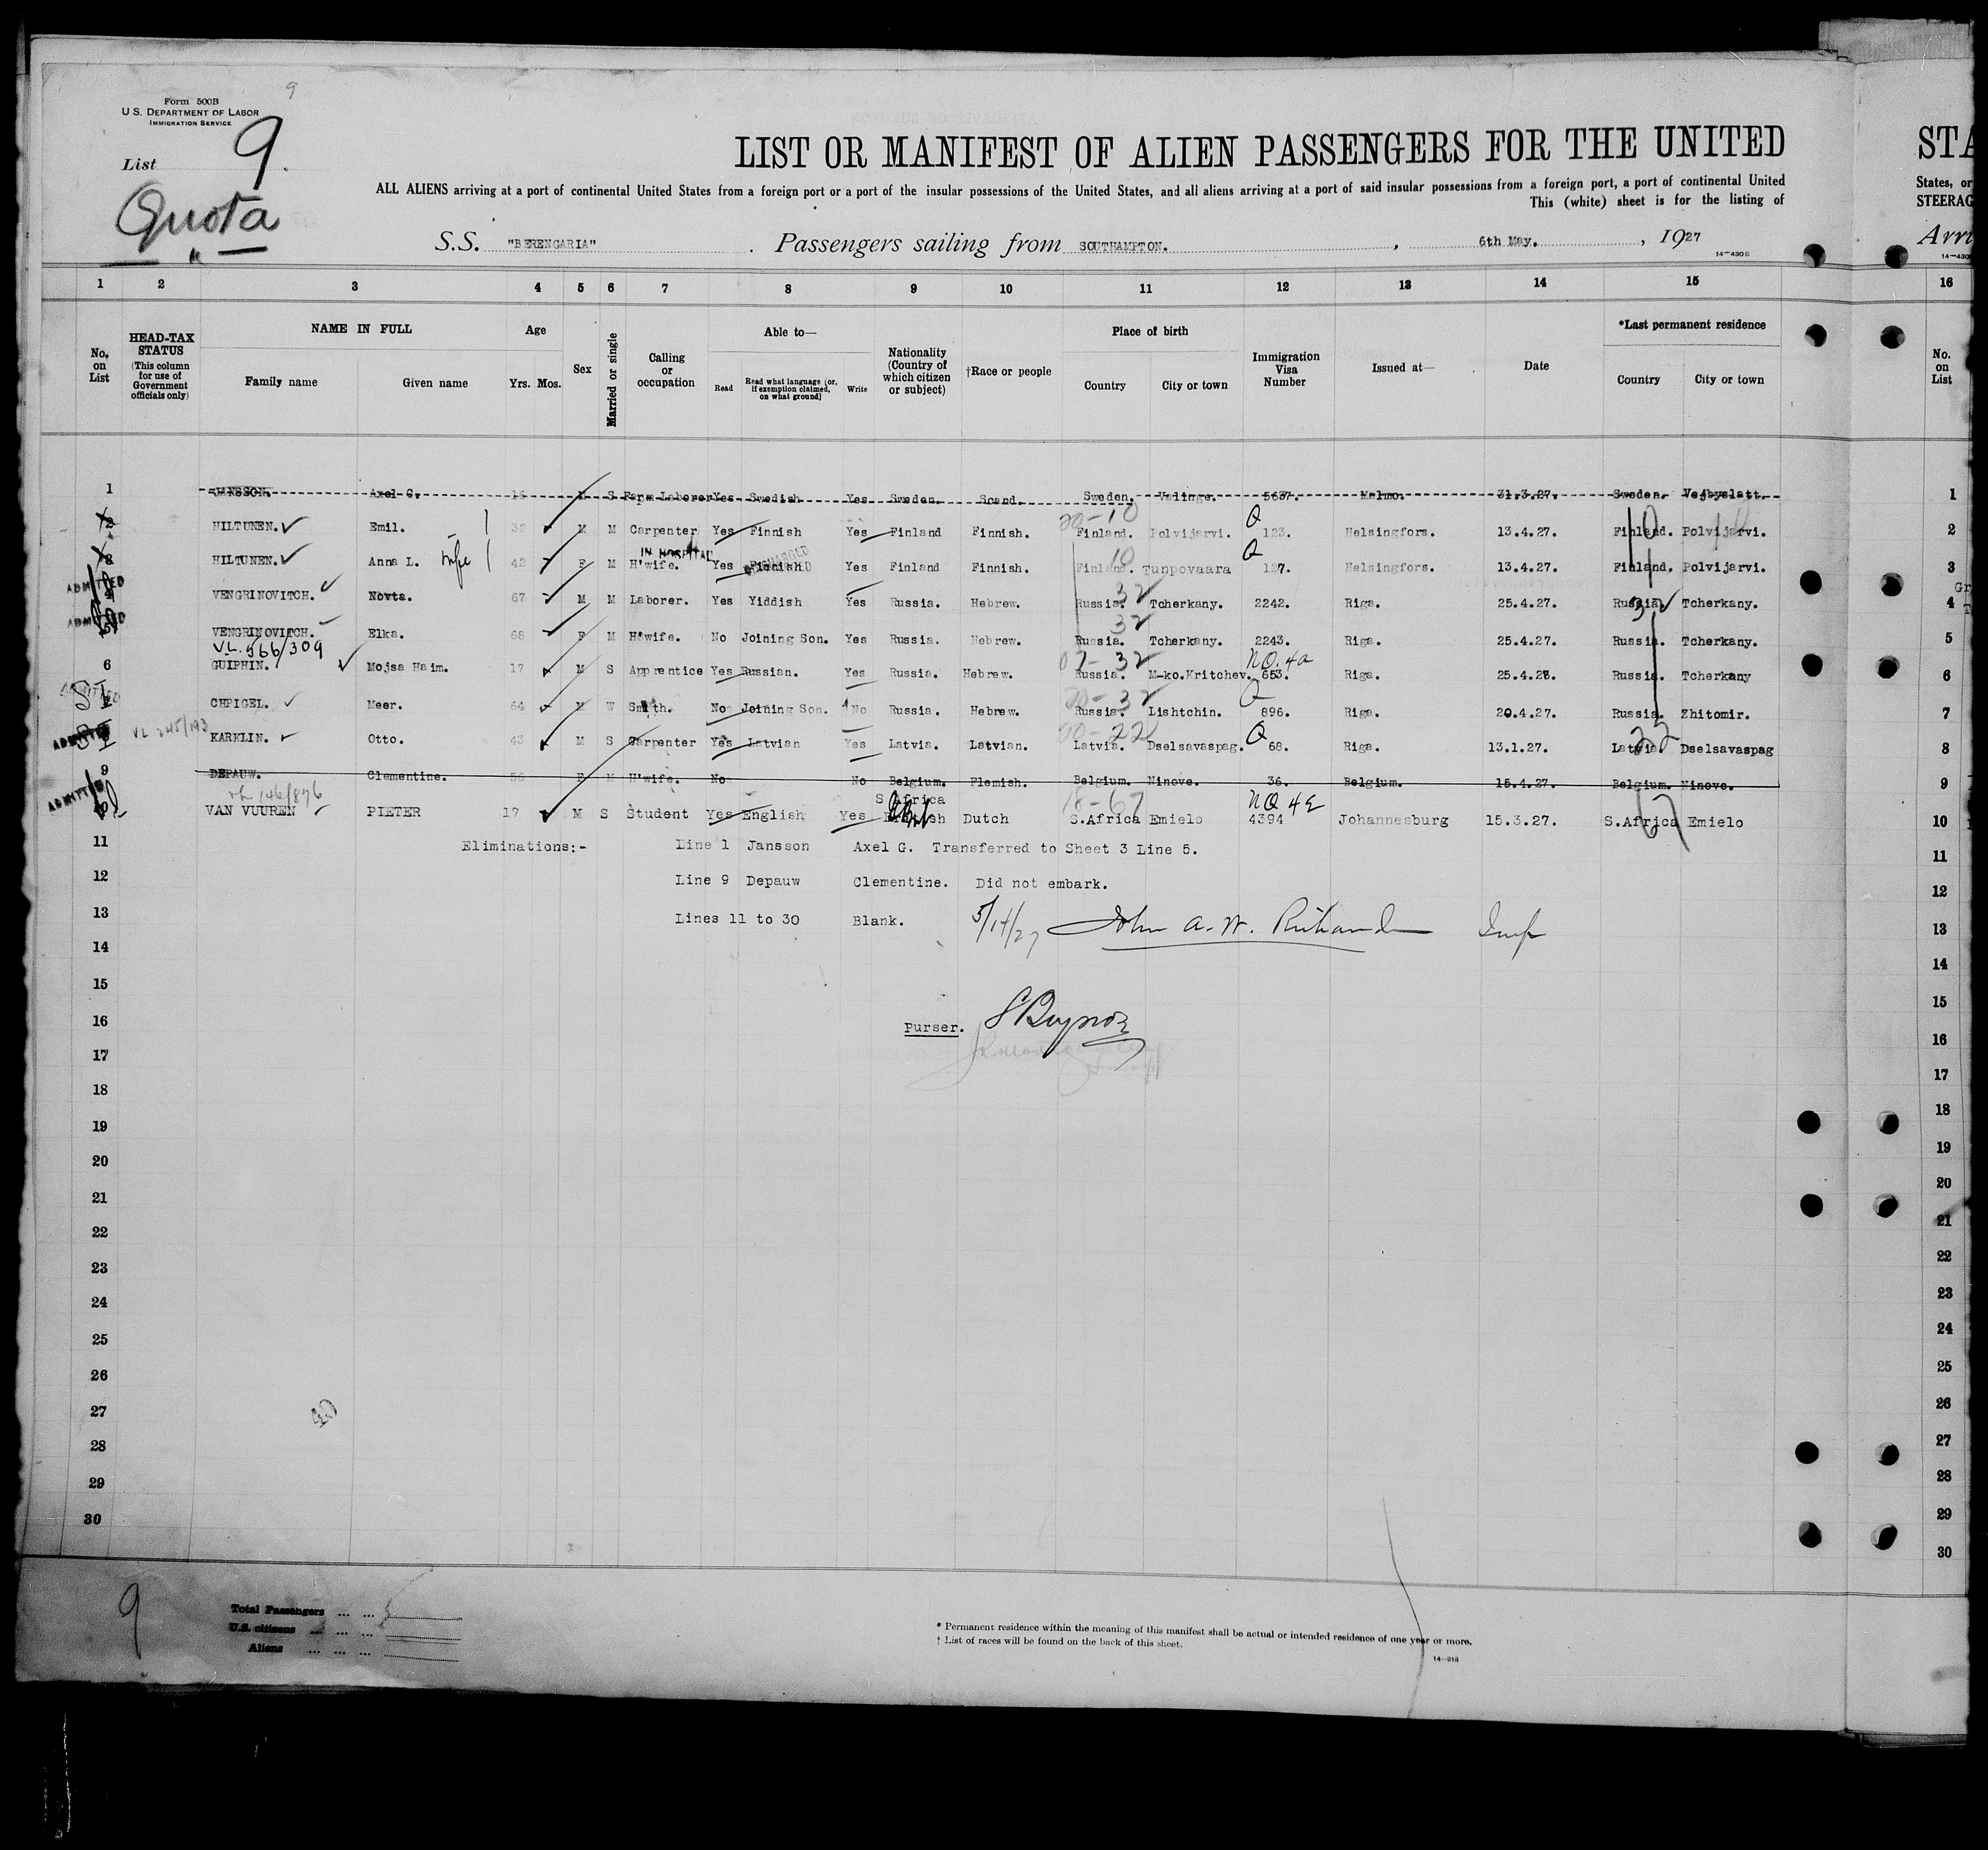 9
Form 500B
U. S. DEPARTMENT OF LABOR
IMMIGRATION SERVICE
List 9.
Quota
"
LIST OR MANIFEST OF ALIEN PASSENGERS FOR THE UNITED
STA
ALL ALIENS arriving at a port of continental United States from a foreign port or a port of the insular possessions of the United States, and all aliens arriving at a port of said insular possessions from a foreign port, a port of continental United
States, or
This (white) sheet is for the listing of
STEERAG
S.S. "BERENGARIA" . Passengers sailing from SOUTHAMPTON. , 6th May. , 1927
Arri
14—430B
14—430
1 2 3 4 5 6 7 8 9 10 11 12 13 14 15 16
No. on List
HEAD-TAX STATUS (This column for use of Government officials only)
NAME IN FULL
Family name Given name
Age
Yrs. Mos.
Sex
Married or single
Calling or occupation
Able to—
Read Read what language [or, if exemption claimed, on what ground] Write
Nationality (Country of which citizen or subject)
†Race or people
Place of birth
Country City or town
Immigration Visa Number
Issued at—
Date
*Last permanent residence
Country City or town
No. on List
1 JANSSON. Axel G. 16 M S Farm Laborer Yes Swedish Yes Sweden. Scand. Sweden. Valinge. 5637. Malmo. 31.3.27. Sweden. Vejbyslatt. 1
20-10 Q 10
2 HILTUNEN. Emil. 32 M M Carpenter Yes Finnish Yes Finland Finnish. Finland. Polvijarvi. 123. Helsingfors. 13.4.27. Finland. Polvijarvi. 2
IN HOSPITAL DISCHARGED 10 Q
3 HILTUNEN. Anna L. wife 42 F M H'wife. Yes Finnish Yes Finland Finnish. Finland. Tunpovaara 127. Helsingfors. 13.4.27. Finland. Polvijarvi. 3
ADMITTED 32
4 VENGRINOVITCH. Novta. 67 M M Laborer. Yes Yiddish Yes Russia. Hebrew. Russia. Tcherkany. 2242. Riga. 25.4.27. Russia. Tcherkany. 4
ADMITTED 32 32
5 VENGRINOVITCH. Elka. 68 F M H'wife. No Joining Son. Yes Russia. Hebrew. Russia. Tcherkany. 2243. Riga. 25.4.27. Russia. Tcherkany. 5
VL. 566/309 07-32 NQ.4a
6 GUIPHIN. Mojsa Haim. 17 M S Apprentice Yes Russian. Yes Russia. Hebrew. Russia. M-ko.Kritchev. 653. Riga. 25.4.27. Russia. Tcherkany 6
ADMITTED SI 20-32 Q
CHPIGEL. Meer. 64 M W Smith. No Joining Son. No Russia. Hebrew. Russia. Lishtchin. 896. Riga. 20.4.27. Russia. Zhitomir. 7
ADMITTED SI VL 245/193 00-22 Q 22
KARKLIN. Otto. 43 M S Carpenter Yes Latvian Yes Latvia. Latvian. Latvia. Dselsavaspag. 68. Riga. 13.1.27. Latvia Dselsavaspag 8
9 DEPAUW. Clementine. 56 F M H'wife. No No Belgium. Flemish. Belgium. Ninove. 36. Belgium. 15.4.27. Belgium. Ninove. 9
ADMITTED S Africa 18-67 NQ 4E 67
VAN VUUREN PIETER 17 M S Student Yes English Yes Dutch S.Africa Emielo 4394 Johannesburg 15.3.27. S.Africa Emielo 10
11 Eliminations:- Line 1 Jansson Axel G. Transferred to Sheet 3 Line 5. 11
12 Line 9 Depauw Clementine. Did not embark. 12
13 Lines 11 to 30 Blank. 5/14/27 John A. W. Richards Insp 13
14 14
15 15
16 Purser. 16
17 17
18 18
19 19
20 20
21 21
22 22
23 23
24 24
25 25
26 26
27 40 27
28 28
29 29
30 30
9
Total Passengers ... ...
U.S. citizens ... ...
Aliens ... ... ...
* Permanent residence within the meaning of this manifest shall be actual or intended residence of one year or more.
† List of races will be found on the back of this sheet.
14—213